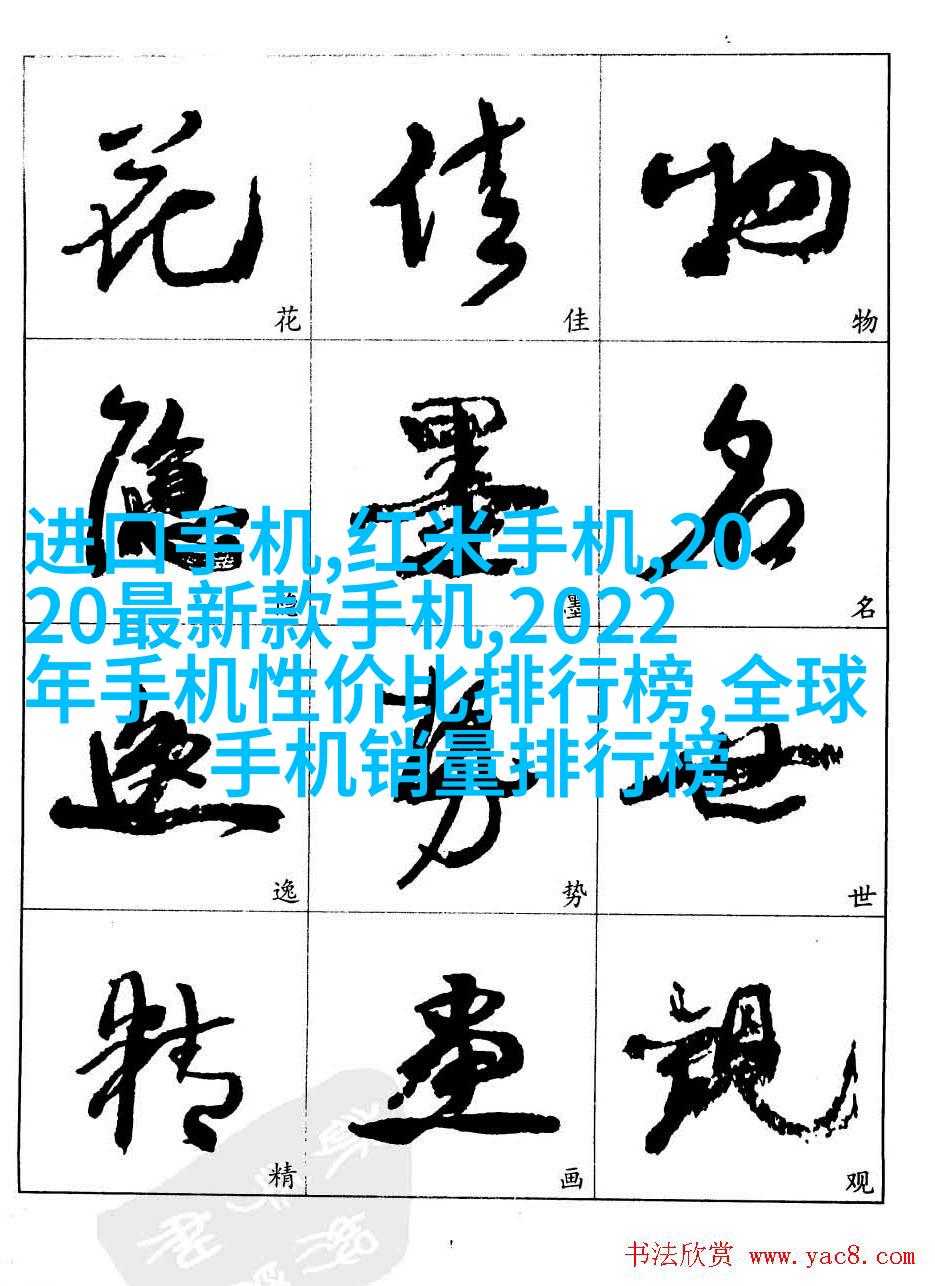 花 佳 物
花 佳 物
隐 墨 名
进口手机,红米手机,20
20最新款手机,2022
隐 墨 名
年手机性价比排行榜,全球
逸 势 世
手机销量排行榜
逸 势 世
精 画 观
精 画 观
书法欣赏 www.yac8.com